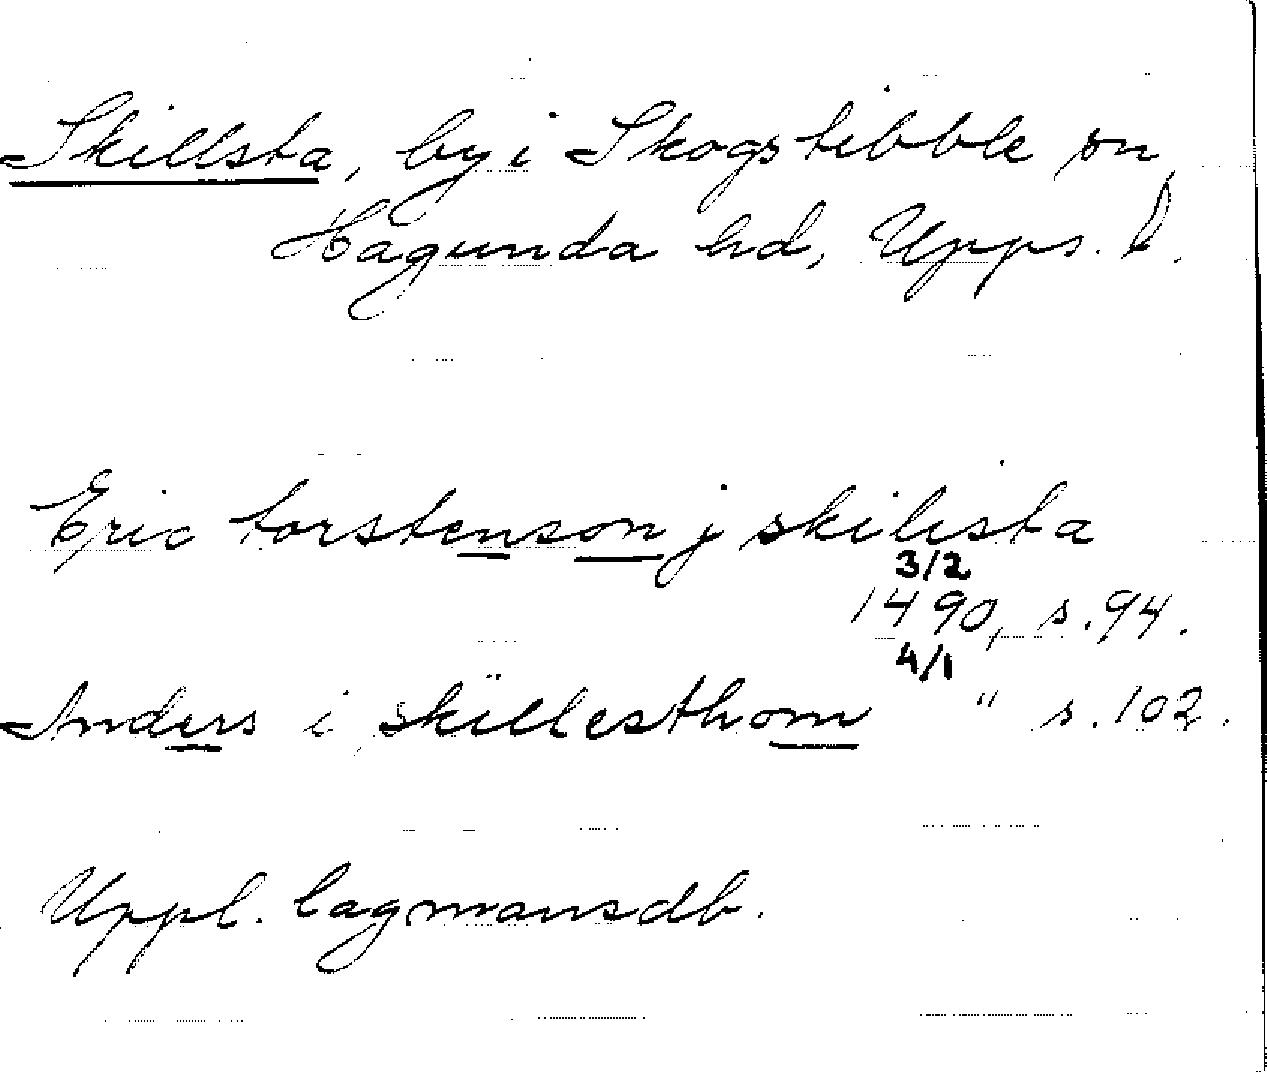 Skillsta, by i Skogstibble sn,
Hagunda hd, Upps. l.
Eric torstenson j skilista
3/2
1490, s. 94.
4/1
Anders i skillesthom " s. 102.
Uppl. lagmansdb.